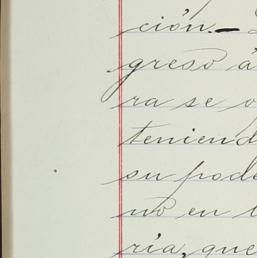 ción.-
greso á
ra se o
teniend
su pode
no en l
ria, que